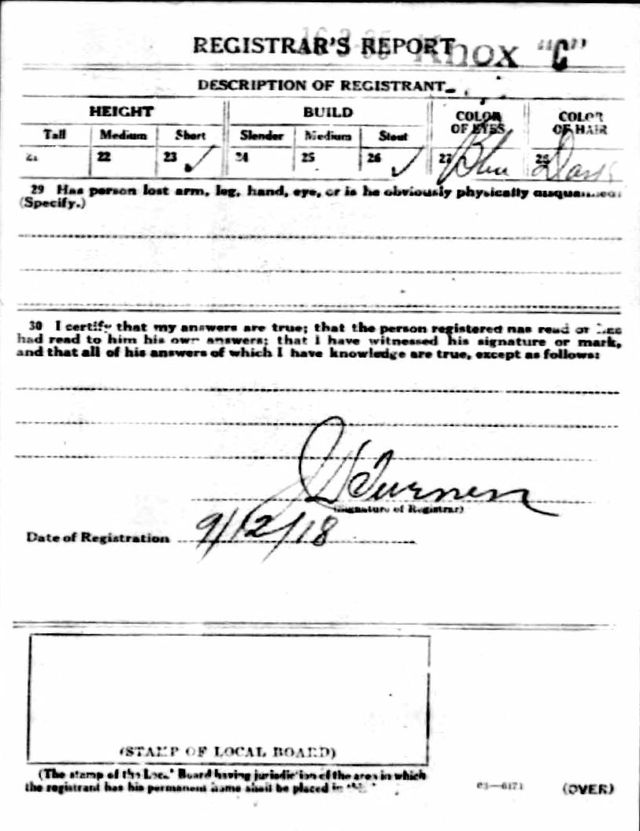 REGISTRAR'S REPORT Knox "C"
DESCRIPTION OF REGISTRANT
HEIGHT BUILD COLOR OF EYES COLOR OF HAIR
Tall Medium Short Slender Medium Stout
21 22 23 ✓ 24 25 26 ✓ 27 Blue 28 Dark
29 Has person lost arm, leg, hand, eye, or is he obviously physically
(Specify.)
30 I certify that my answers are true; that the person registered has read or has
had read to him his own answers; that I have witnessed his signature or mark,
and that all of his answers of which I have knowledge are true, except as follows:
(Signature of Registrar)
Date of Registration 9/12/18
(STAMP OF LOCAL BOARD)
(The stamp of the Local Board having jurisdiction of the area in which
the registrant has his permanent home shall be placed in
03—6171 (OVER)